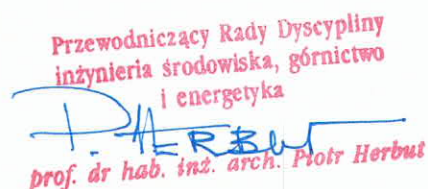 Przewodniczący Rady Dyscypliny
inżynieria środowiska, górnictwo
i energetyka
P. HERBUT
prof. dr hab. inż. arch. Piotr Herbut